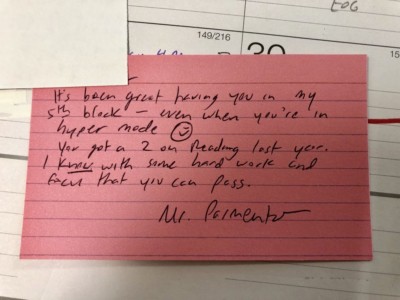 EOG
149/216
30
It's been great having you in my
5th block - even when you're in
hyper mode ☺
You got a 2 on Reading last year.
I know with some hard work and
focus that you can pass.
Mr. Parmenter